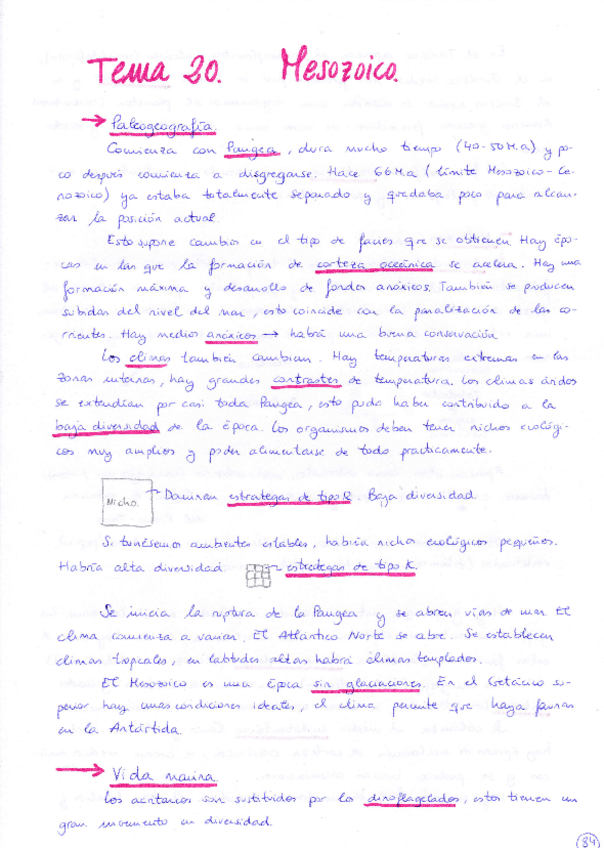 Tema 20. Mesozoico.
→ Paleogeografía.
Comienza con Pangea, dura mucho tiempo (40-50 M.a) y po-
co después comienza a disgregarse. Hace 66 M.a (límite Mesozoico-Ce-
nozoico) ya estaba totalmente separado y quedaba poco para alcan-
zar la posición actual.
Esto supone cambios en el tipo de facies que se obtienen. Hay épo-
cas en las que la formación de corteza oceánica se acelera. Hay una
formación máxima y desarrollo de fondos anóxicos. También se producen
subidas del nivel del mar, esto coincide con la paralización de las co-
rrientes. Hay medios anóxicos → habrá una buena conservación
Los climas también cambian. Hay temperaturas extremas en las
zonas internas, hay grandes contrastes de temperatura. Los climas áridos
se extendían por casi toda Pangea, esto pudo haber contribuido a la
baja diversidad de la época. Los organismos deben tener nichos ecológi-
cos muy amplios y poder alimentarse de todo prácticamente.
Nicho. Dominan estrategas de tipo R. Baja diversidad.
Si tuviésemos ambientes estables, habría nichos ecológicos pequeños.
Habría alta diversidad. estrategas de tipo K.
Se inicia la ruptura de la Pangea y se abren vías de mar. El
clima comienza a variar. El Atlántico Norte se abre. Se establecen
climas tropicales, en latitudes altas habrá climas templados.
El Mesozoico es una época sin glaciaciones. En el Cretácico su-
perior hay unas condiciones ideales, el clima permite que haya faunas
en la Antártida.
→ Vida marina
Los acritarcos son sustituidos por los dinoflagelados, estos tienen un
gran incremento en diversidad.
84